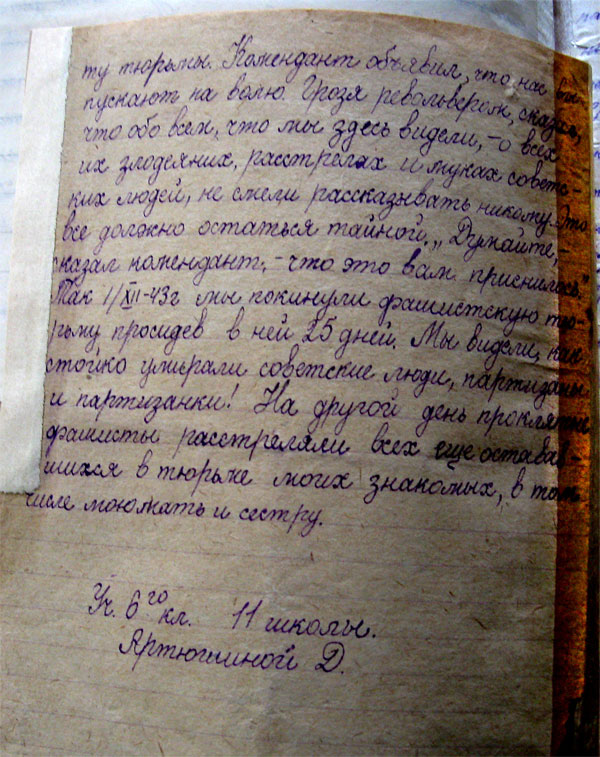 ту тюрьмы. Комендант объявил, что нас вы-
пускают на волю. Грозя револьвером, сказал,
что обо всем, что мы здесь видели, - о всех
их злодеяних, расстрелах и муках советс-
ких людей, не смели рассказывать никому. Это
все должно остаться тайной. „Думайте, -
сказал комендант, - что это вам приснилось."
Так 1/XII-43г мы покинули фашистскую тю-
рьму просидев в ней 25 дней. Мы видели, как
стойко умирали советские люди, партизаны
и партизанки! На другой день проклятые
фашисты расстреляли всех еще остава-
шихся в тюрьме моих знакомых, в том
числе мою мать и сестру.
Уч. 6го кл. 11 школы.
Артюшиной Д.